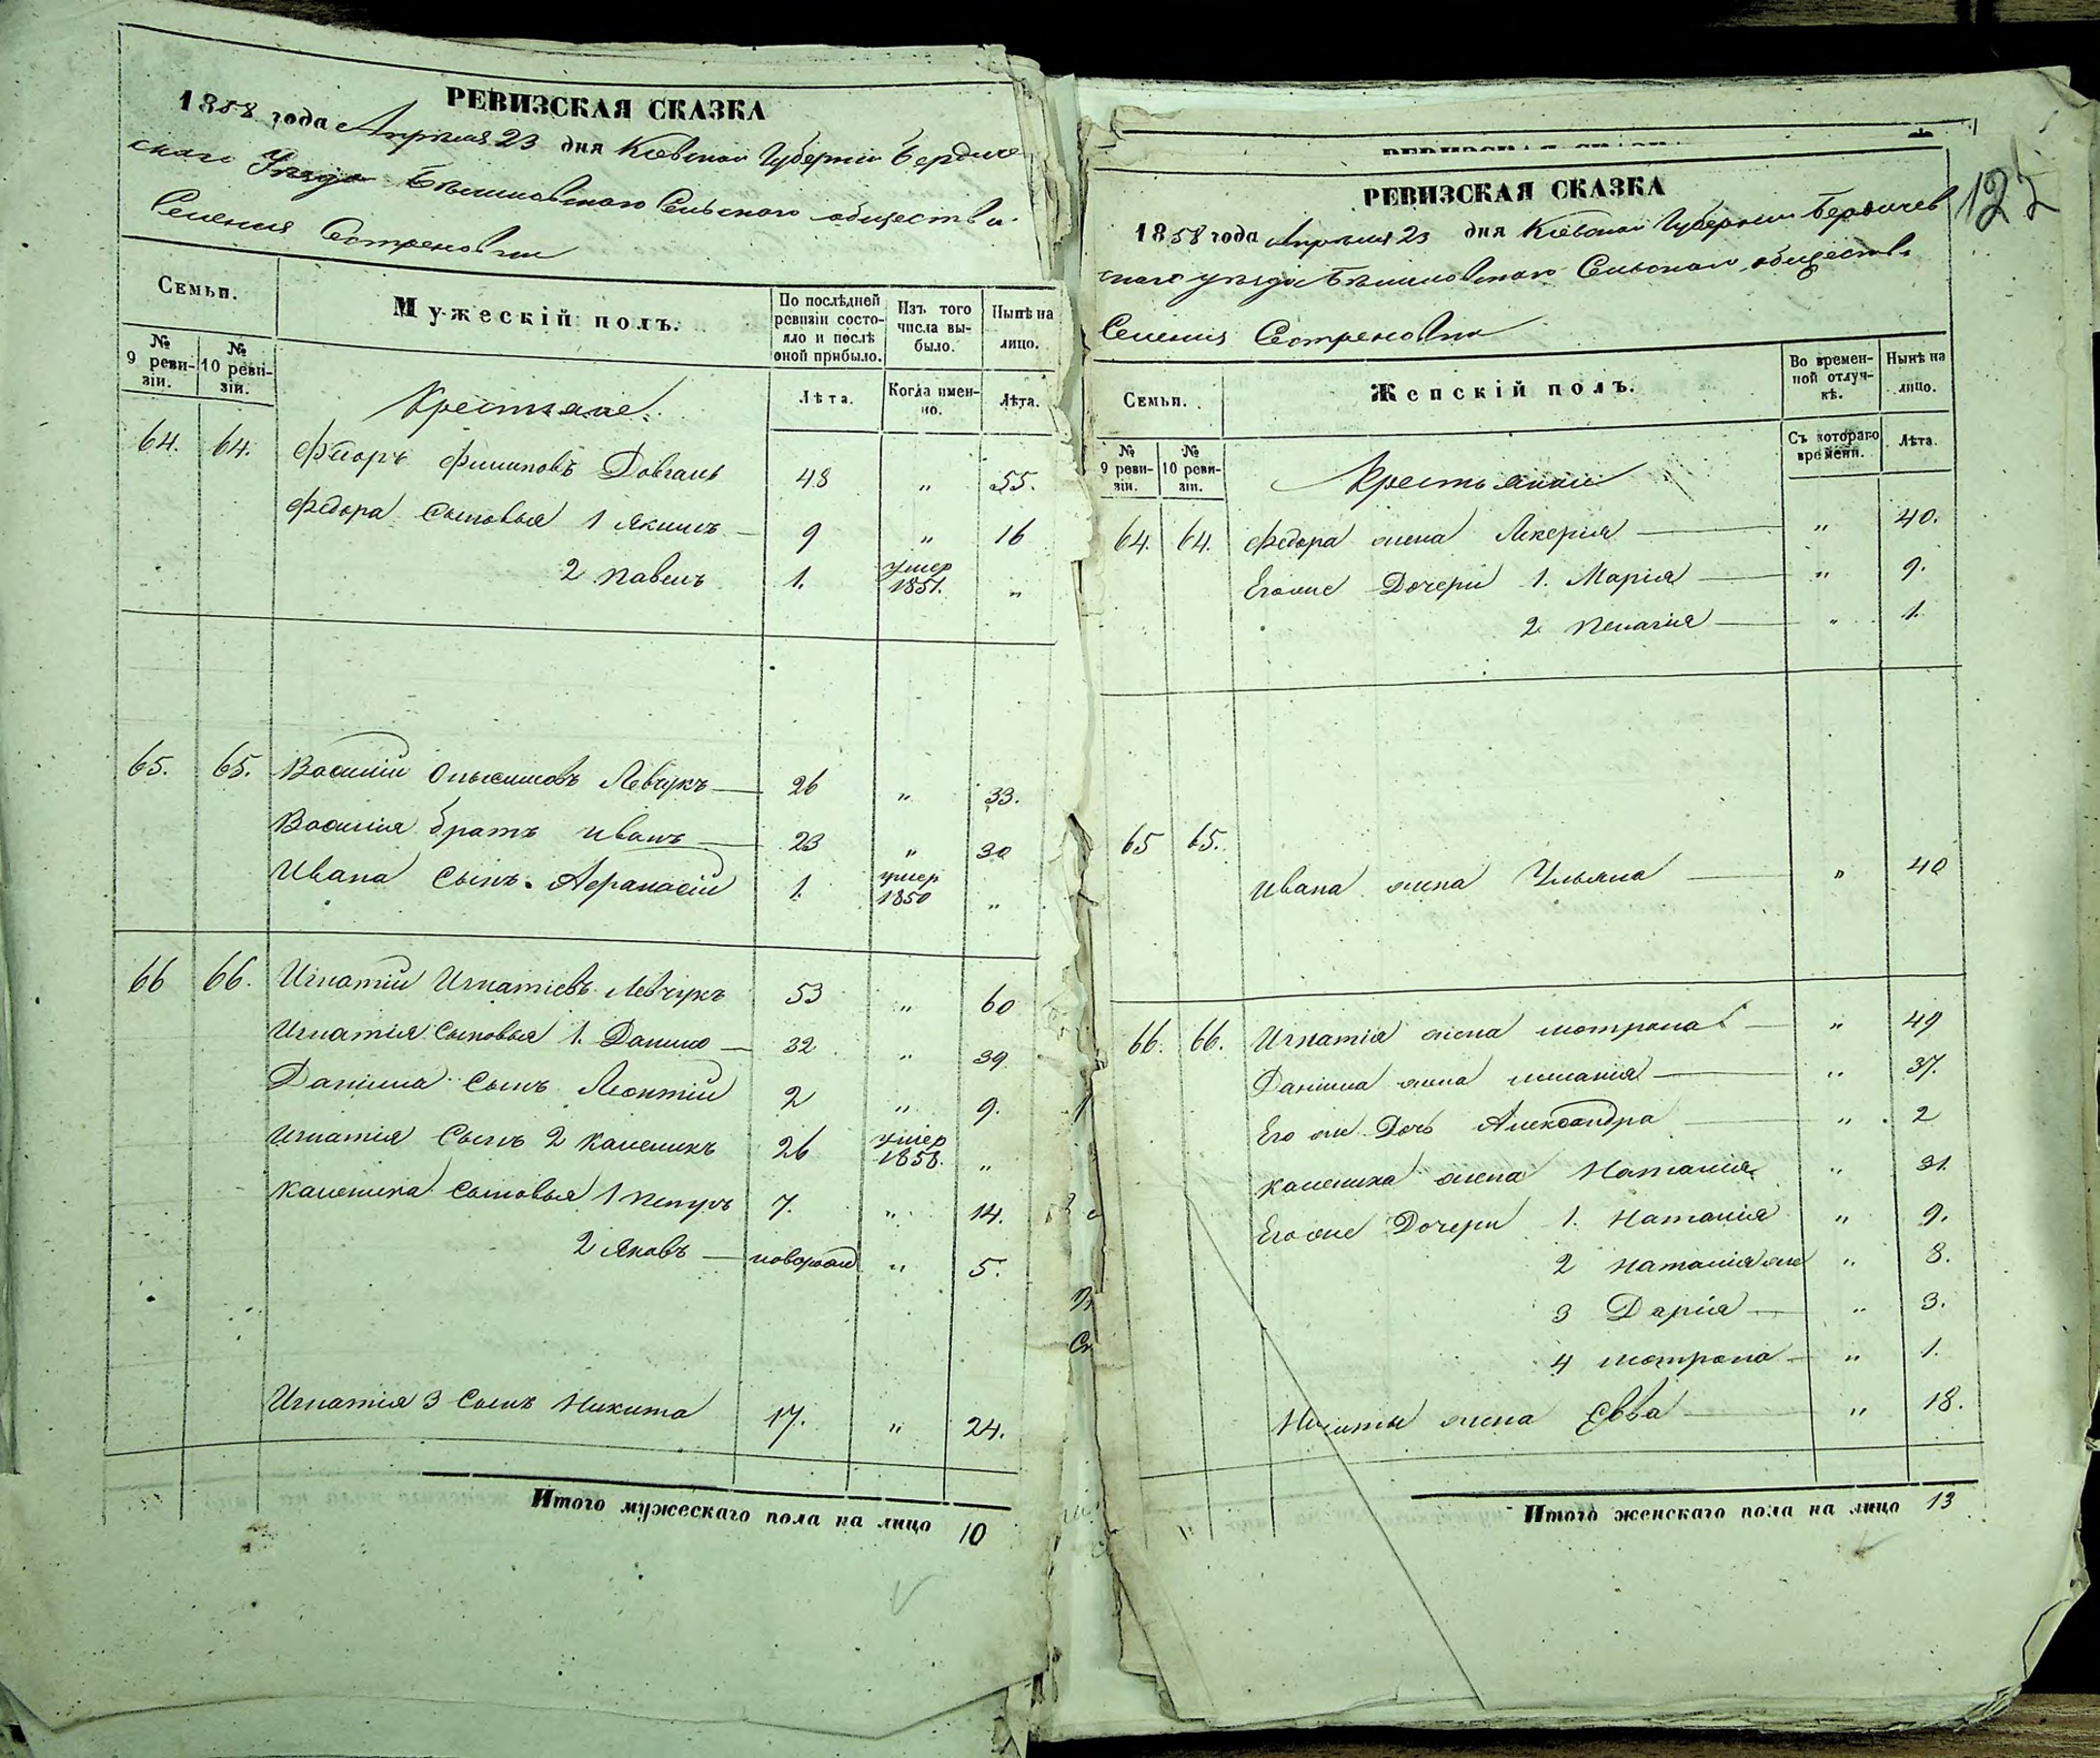 РЕВИЗСКАЯ СКАЗКА
1858 года Апрѣля 23 дня Кіевской Губерніи Бердиче
скаго Уѣзда Сельскаго общества
Селенія Сестреновки
Семьи.
№ 9 ревизіи.
№ 10 ревизіи.
Мужескій полъ.
По послѣдней
ревизіи состо-
яло и послѣ
оной прибыло.
Изъ того
числа вы-
было.
Нынѣ на
лицо.
Лѣта.
Когда имен-
но.
Лѣта.
Крестьяне.
64. 64. Филиповъ Довгань 48 " 55.
Федора сыновья 1 Якимъ — 9 " 16
2 Павелъ 1. умер 1851. "
65. 65. Василій Онысимовъ Левчукъ — 26 " 33.
Василія братъ Иванъ — 23 " 30
Ивана сынъ Афанасій 1. умер 1850 "
66 66. Игнатій Игнатіевъ Левчукъ 53 " 60
Игнатія сыновья 1. Данило — 32 " 39
Даніила сынъ Леонтій 2 " 9.
Игнатія сынъ 2 Каленикъ 26 умер 1858. "
Каленика сыновья 1 7. " 14.
2 Яковъ — новорожд " 5.
Игнатія 3 сынъ Никита 17. " 24.
Итого мужескаго пола на лицо 10
РЕВИЗСКАЯ СКАЗКА
РЕВИЗСКАЯ СКАЗКА
1858 года Апрѣля 23 дня Кіевской Губерніи Бердичев
скаго уѣзда Сельскаго общества
Селенія Сестреновки
Семьи.
№ 9 ревизіи.
№ 10 ревизіи.
Женскій полъ.
Во времен-
ной отлуч-
кѣ.
Нынѣ на
лицо.
Съ котораго
времени.
Лѣта.
Крестьянки
64. 64. Федора жена Лкерія — " 40.
Его же Дочери 1. Марія — " 9.
2 Пелагія — " 1.
65 65.
Ивана жена Ульяна — " 40
66. 66. Игнатія жена Мотрона — " 49
Даніила жена Меланія — " 37.
Его же Дочь Александра — " 2
Каленика жена Наталія " 31.
Его же Дочери 1. Наталія " 9.
2 Наталія же " 8.
3 Дарія — " 3.
4 Мотрона — " 1.
Никиты жена Евва — " 18.
Итого женскаго пола на лицо 13